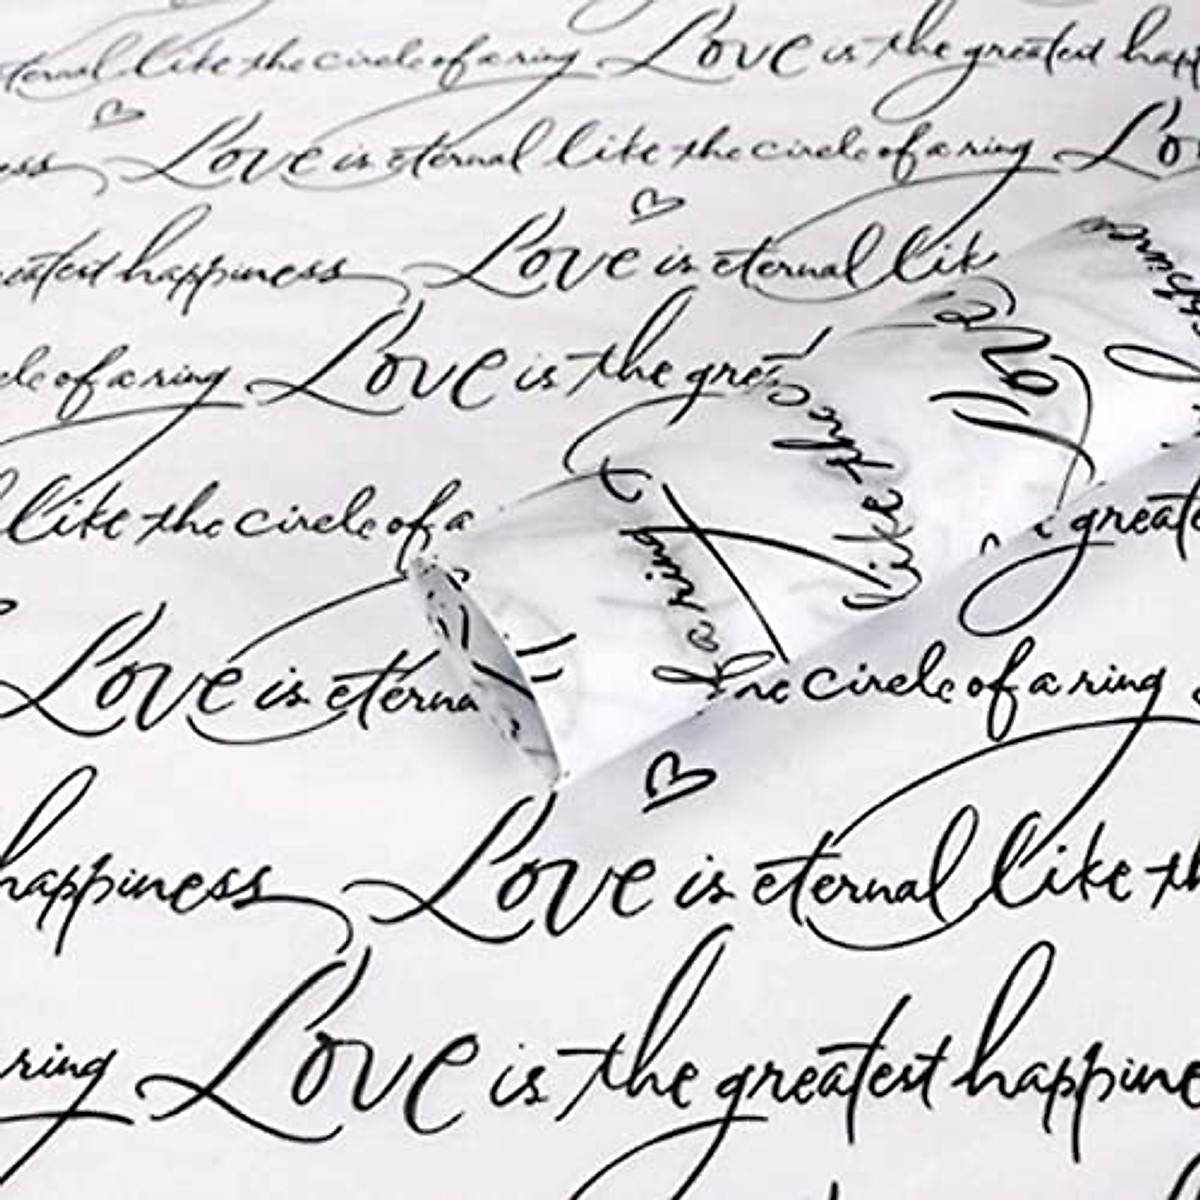 eternal like the circle of a ring Love is the greatest happ
ess Love is eternal like the circle of a ring Lo
eatest happiness Love is eternal lik
cle of a ring Love is the gre
like the circle of a
great
Love is eterna
circle of a ring
happiness Love is eternal like th
ring Love is the greatest happine
like the c
a ring